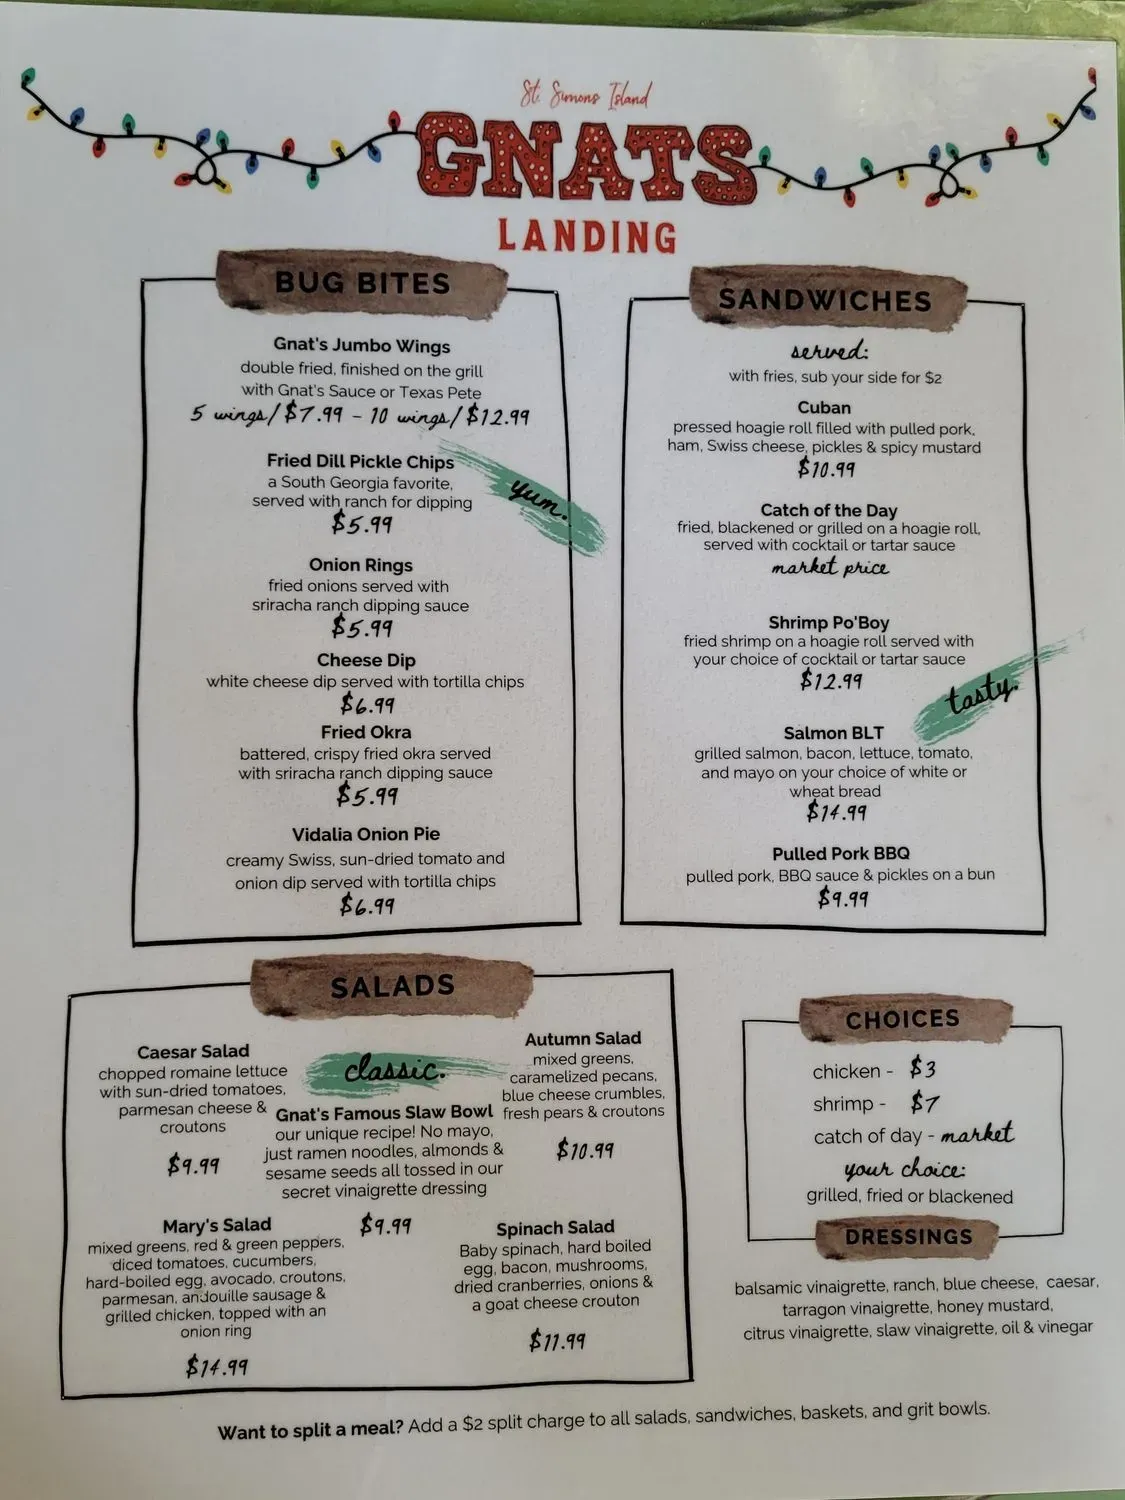 St. Simons Island
GNATS
LANDING
BUG BITES
Gnat's Jumbo Wings
double fried, finished on the grill
with Gnat's Sauce or Texas Pete
5 wings/$7.99 - 10 wings/$12.99
Fried Dill Pickle Chips
a South Georgia favorite,
served with ranch for dipping
$5.99
yum.
Onion Rings
fried onions served with
sriracha ranch dipping sauce
$5.99
Cheese Dip
white cheese dip served with tortilla chips
$6.99
Fried Okra
battered, crispy fried okra served
with sriracha ranch dipping sauce
$5.99
Vidalia Onion Pie
creamy Swiss, sun-dried tomato and
onion dip served with tortilla chips
$6.99
SANDWICHES
served:
with fries, sub your side for $2
Cuban
pressed hoagie roll filled with pulled pork,
ham, Swiss cheese, pickles & spicy mustard
$10.99
Catch of the Day
fried, blackened or grilled on a hoagie roll,
served with cocktail or tartar sauce
market price
Shrimp Po'Boy
fried shrimp on a hoagie roll served with
your choice of cocktail or tartar sauce
$12.99
tasty.
Salmon BLT
grilled salmon, bacon, lettuce, tomato,
and mayo on your choice of white or
wheat bread
$14.99
Pulled Pork BBQ
pulled pork, BBQ sauce & pickles on a bun
$9.99
SALADS
Caesar Salad
chopped romaine lettuce
with sun-dried tomatoes,
parmesan cheese &
croutons
$9.99
classic.
Gnat's Famous Slaw Bowl
our unique recipe! No mayo,
just ramen noodles, almonds &
sesame seeds all tossed in our
secret vinaigrette dressing
$9.99
Autumn Salad
mixed greens,
caramelized pecans,
blue cheese crumbles,
fresh pears & croutons
$10.99
Mary's Salad
mixed greens, red & green peppers,
diced tomatoes, cucumbers,
hard-boiled egg, avocado, croutons,
parmesan, andouille sausage &
grilled chicken, topped with an
onion ring
$14.99
Spinach Salad
Baby spinach, hard boiled
egg, bacon, mushrooms,
dried cranberries, onions &
a goat cheese crouton
$11.99
CHOICES
chicken - $3
shrimp - $7
catch of day - market
your choice:
grilled, fried or blackened
DRESSINGS
balsamic vinaigrette, ranch, blue cheese, caesar,
tarragon vinaigrette, honey mustard,
citrus vinaigrette, slaw vinaigrette, oil & vinegar
Want to split a meal? Add a $2 split charge to all salads, sandwiches, baskets, and grit bowls.